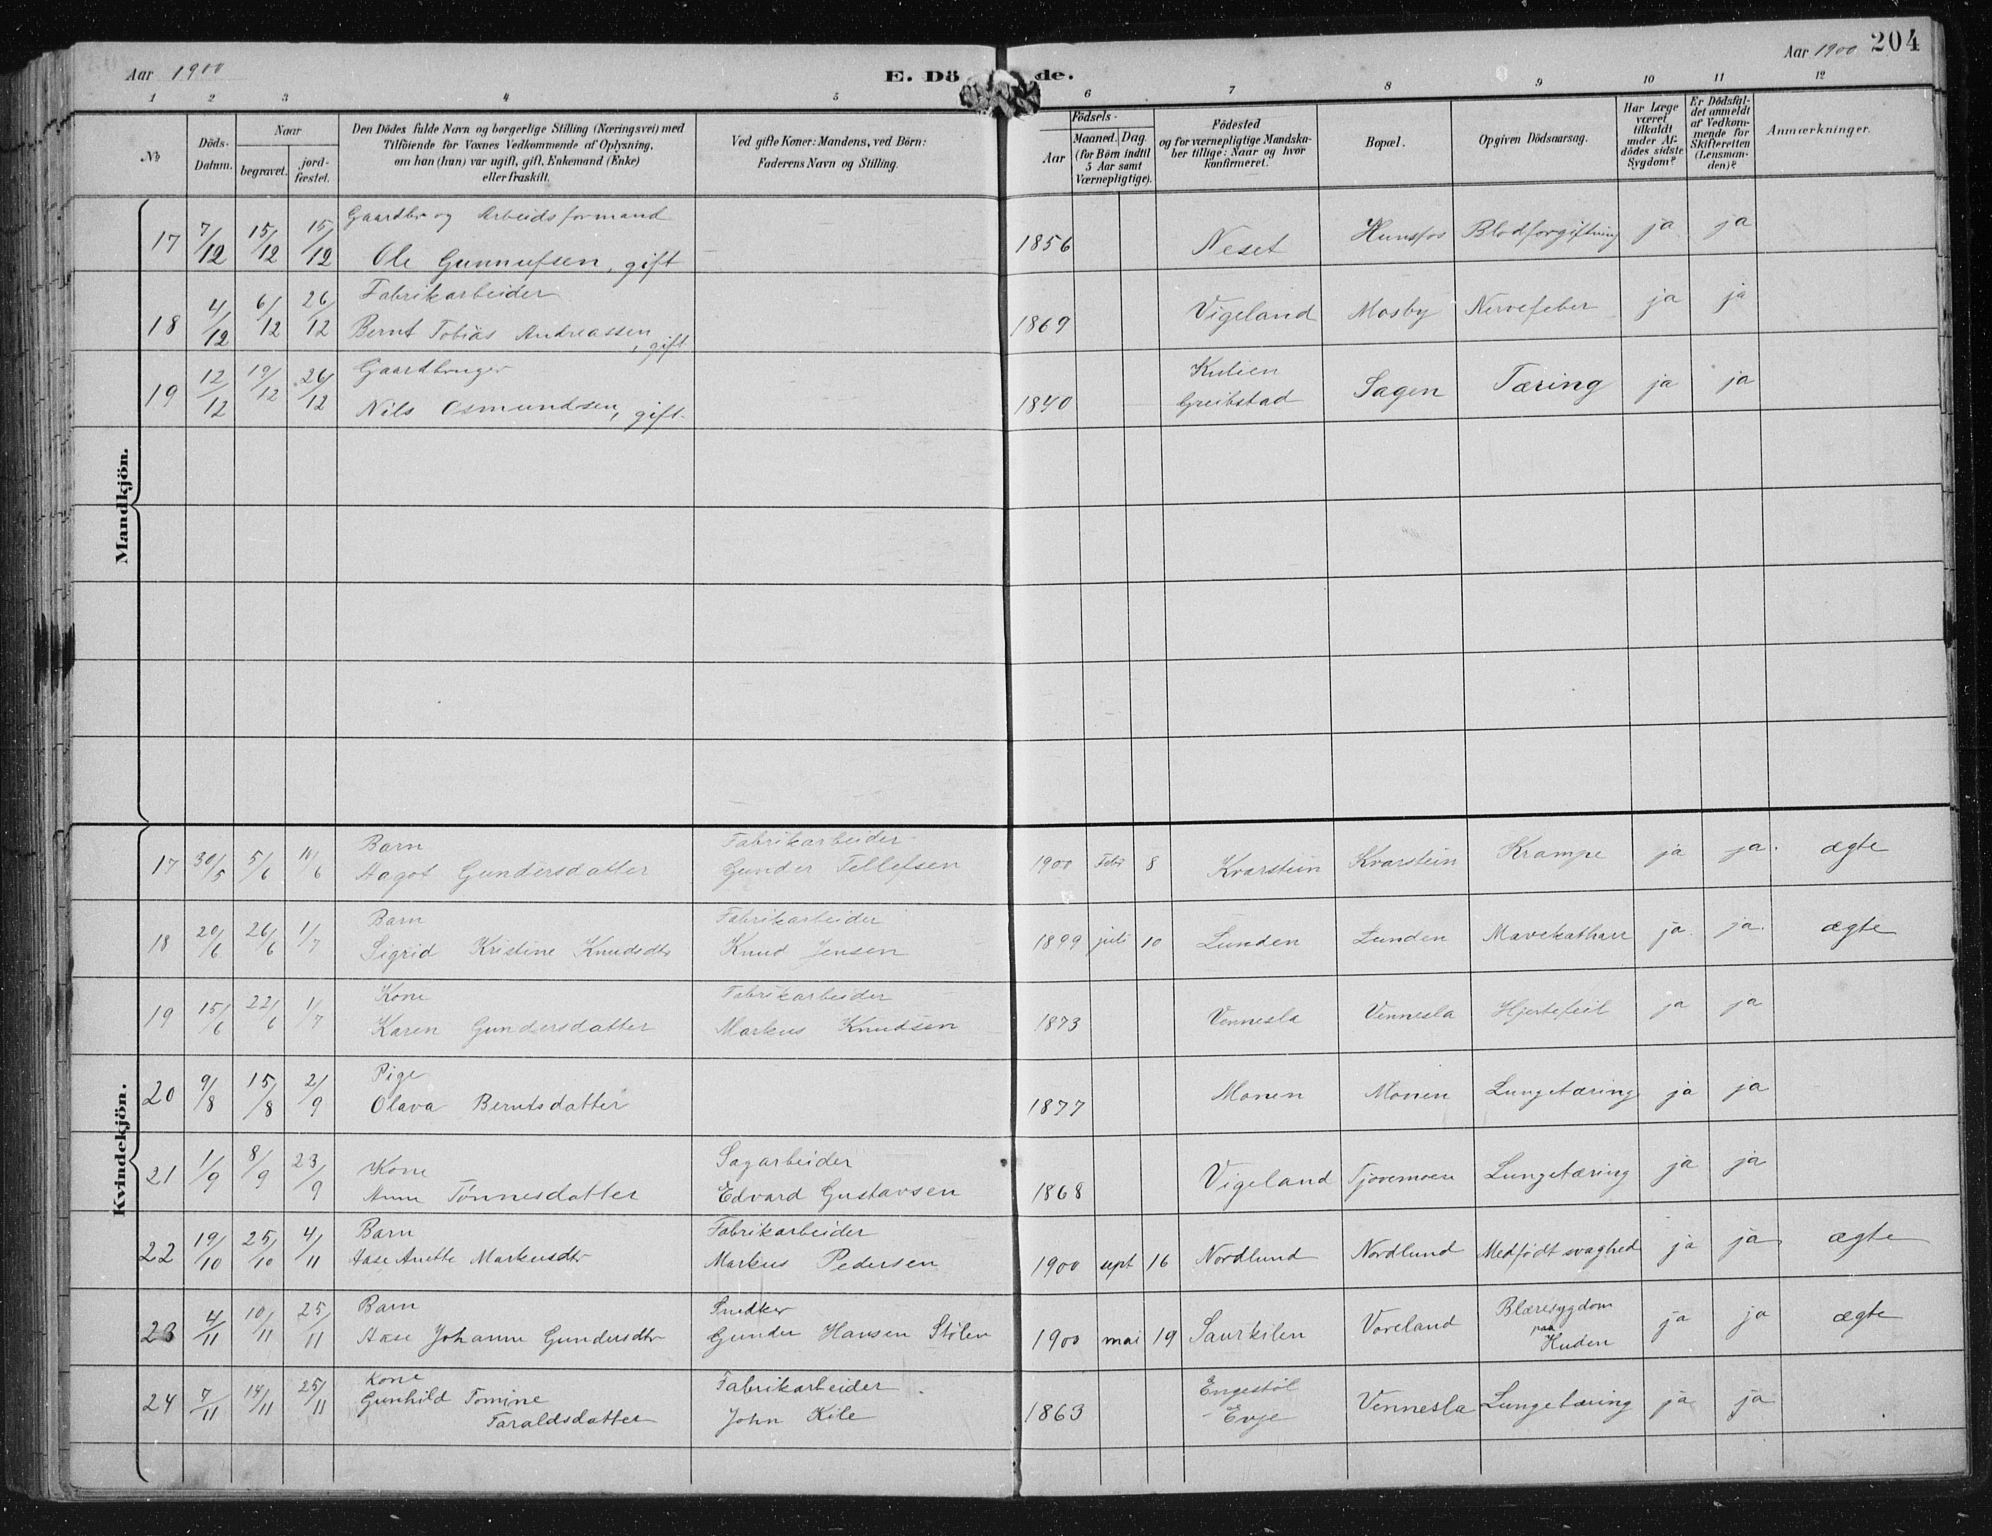 Aar 1900
E. Dö
de.
Aar 1900 204
1 2 3 4 5 6 7 8 9 10 11 12
№
Döds-Datum.
Naar
begravet.
jord-fæstet.
Den Dödes fulde Navn og borgerlige Stilling (Næringsvei) med
Tilföiende for Voxnes Vedkommende af Oplysning,
om han (hun) var ugift, gift, Enkemand (Enke)
eller fraskilt.
Ved gifte Koner: Mandens, ved Börn:
Faderens Navn og Stilling.
Födsels-
Aar
Maaned. Dag.
(for Börn indtil
5 Aar samt
Værnepligtige).
Födested
og for værnepligtige Mandska-
ber tillige: Naar og hvor
konfirmeret.
Bopæl.
Opgiven Dödsaarsag.
Har Læge
været
tilkaldt
under Af-
dödes sidste
Sygdom?
Er Dödsfal-
det anmeldt
af Vedkom-
mende for
Skifteretten
(Lensman-
den)?
Anmærkninger.
Mandkjön.
17 7/12 15/12 15/12 Gaardbr og Arbeidsformand
Ole Gunnufsen, gift 1856 Neset Hunsfos Blodforgiftning ja ja
18 4/12 6/12 26/12 Fabrikarbeider
Bernt Tobias Andreassen, gift 1869 Vigeland Mosby Nervefeber ja ja
19 12/12 19/12 26/12 Gaardbruger
Nils Osmundsen, gift 1840 Kulien
Greibstad Sagen Tæring ja ja
Kvindekjön.
17 30/5 5/6 /6 Barn
Aagot Gundersdatter Fabrikarbeider
Gunder Tellefsen 1900 Febr 8 Kvarstein Kvarstein Krampe ja ja ægte
18 20/6 26/6 1/7 Barn
Sigrid Kristine Knudsdtr Fabrikarbeider
Knud Jensen 1899 juli 10 Lunden Lunden Mavekatharr ja ja ægte
19 15/6 22/6 1/7 Kone
Karen Gundersdatter Fabrikarbeider
Markus Knudsen 1873 Vennesla Vennesla Hjertefeil ja ja
20 9/8 15/8 2/9 Pige
Olava Berntsdatter 1877 Monen Monen Lungetæring ja ja
21 1/9 8/9 23/9 Kone
Anne Tönnesdatter Sagarbeider
Edvard Gustavsen 1868 Vigeland Tjovemoen Lungetæring ja ja
22 19/10 25/10 4/11 Barn
Aase Anette Markusdtr Fabrikarbeider
Markus Pedersen 1900 sept 16 Nordlund Nordlund Medfödt svaghed ja ja ægte
23 4/11 10/11 25/11 Barn
Aase Johanne Gundersdtr Snedker
Gunder Hansen Stölen 1900 mai 19 Saurkilen Voreland Blæresygdom
paa
Huden ja ja ægte
24 7/11 14/11 25/11 Kone
Gunhild Tomine
Taraldsdatter Fabrikarbeider
John Kile 1863 Engestöl
Evje Vennesla Lungetæring ja ja